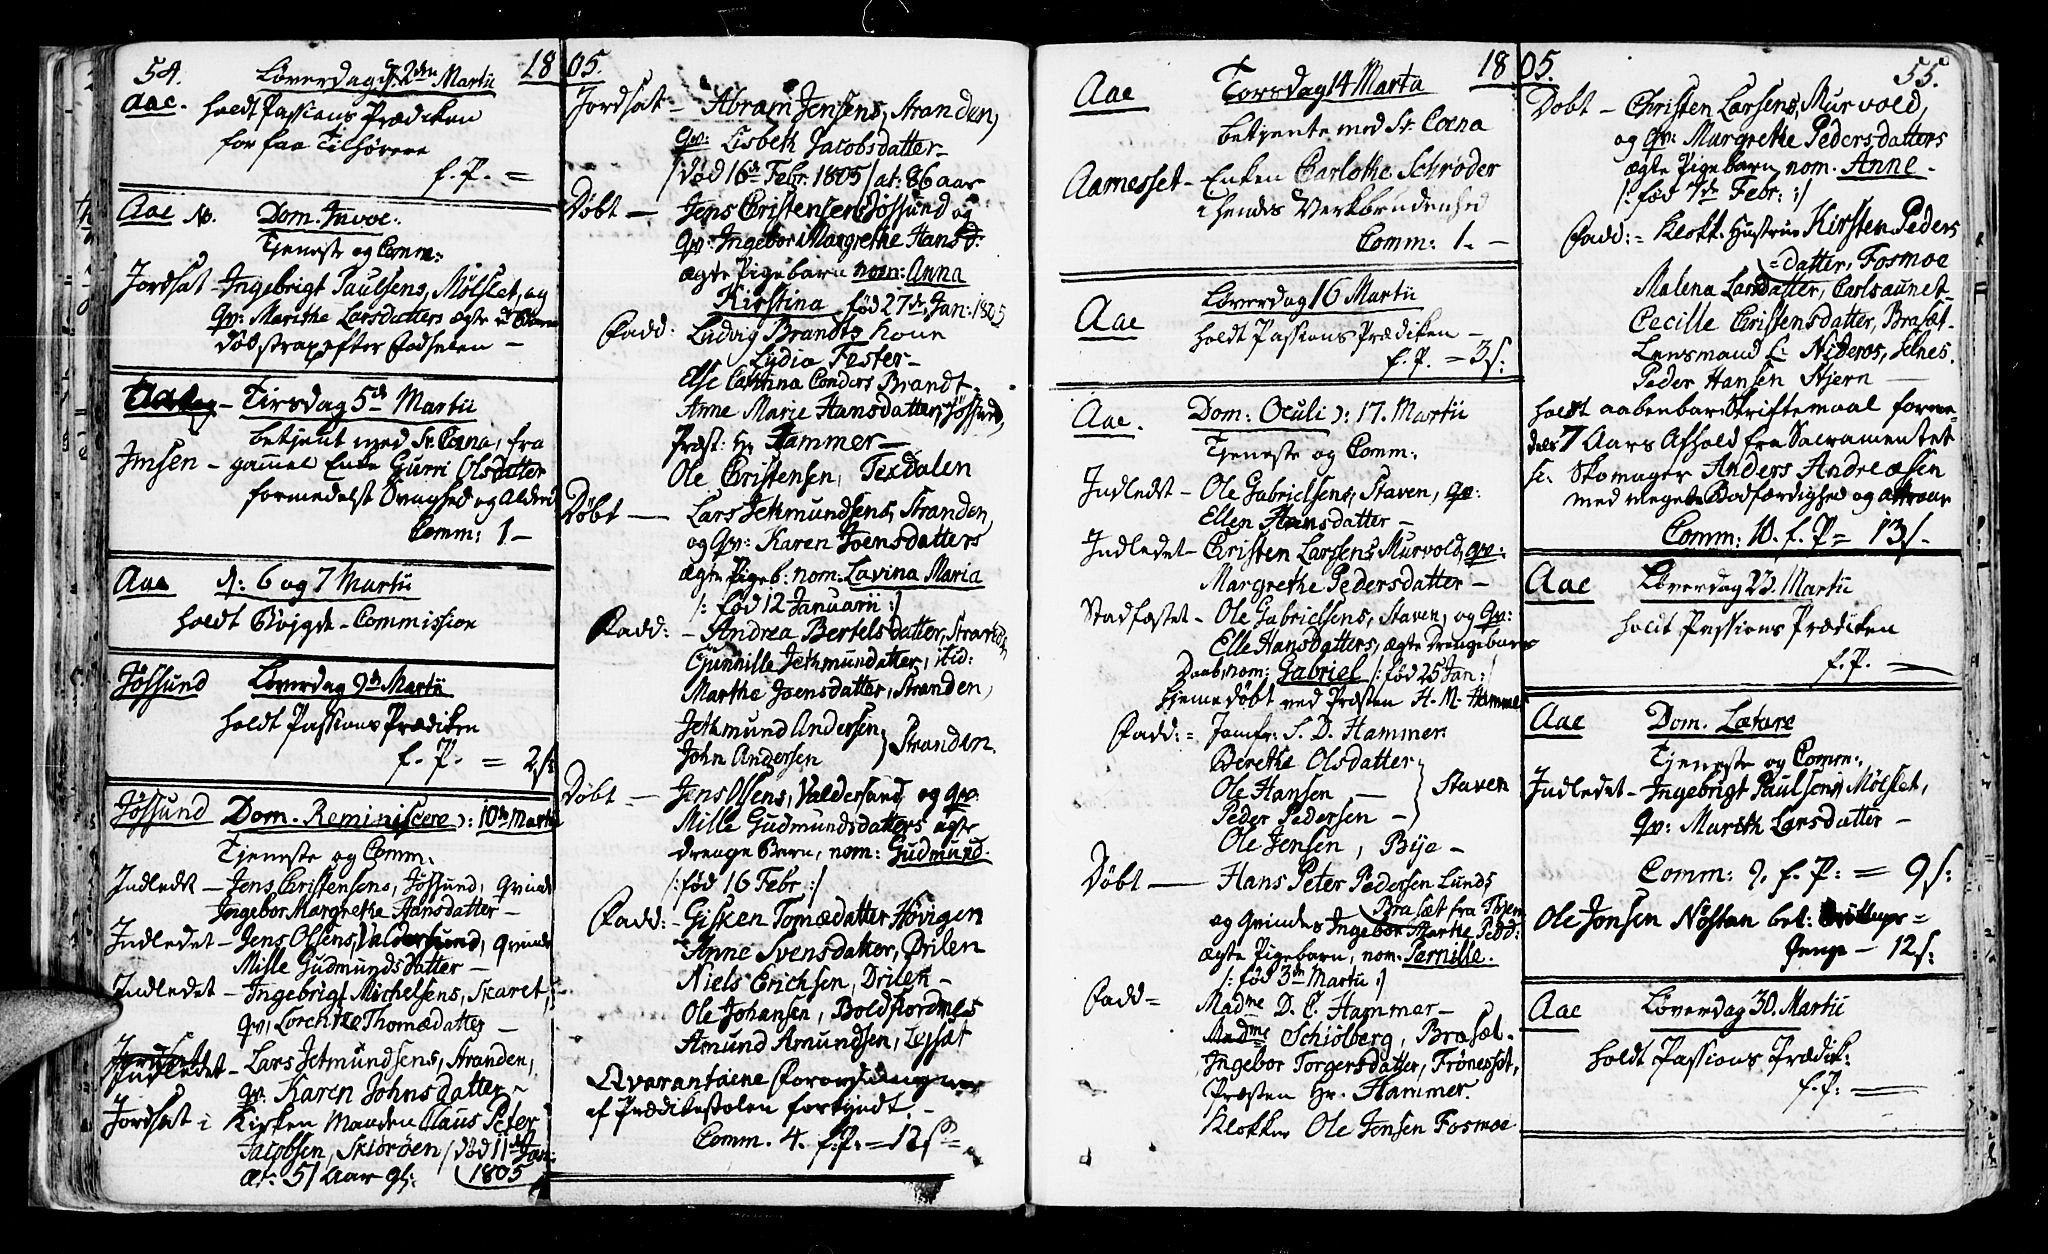 54. 18
Løverdag d. 2den Martii
Aae. holdt Passions Prædiken
for faa Tilhørere
f. P. =
Aae No. Dom. Invoc:
Tjeneste og Comm:
Jordsat - Ingebrigt Paulsens, Mølslet, og
Qv: Marithe Larsdatters ægte Barn
død strax efter Fødselen -
Tirsdag 5te Martii
betjent med Sr. Cœna, fra
Imsen - gammel Enke Gurri Olsdatter
formedelst Svaghed og Alderd
Comm: 1 -
Aae d: 6 og 7 Martii
holdt Bøjgde-Commission
Jøssund Løverdag 9de Martii
holdt Passions Prædiken
f. P. = 2 s:
Jøssund Dom. Reminiscere ɔ: 10de Martii
Tjeneste og Comm.
Indledt - Jens Christensens, Jøssund, Qvinde
Ingebor Margrethe Hansdatter -
Indledet - Jens Olsens, Valdersund, Qvinde
Mille Gudmundsdatter -
Indledet - Ingebrigt Michelsens, Skaret,
Qv: Lorentze Thomædatter -
Indledet - Lars Jetmundsens, Stranden,
Qv: Karen Johnsdatter -
Jordsat i Kirken Manden Claus Peter
Jacobsen, Skiørøen / død 11te Jan:
æt: 51 Aar gl: 1805
05.
Jordsat - Abram Jensens, Stranden,
Qv: Lisbeth Jacobsdatter -
/ død 16de Febr. 1805 / æt: 86 aar
Døbt - Jens Christensens Jøssund og
Qv: Ingebor Margrethe Hansd:
ægte Pigebarn nom: Anna
Kirstina, fød 27de Jan: 1805
Fadd: Ludvig Brandts Kone
Lydia Fester -
Else Catrina Conders Brandt -
Anne Marie Hansdatter, Jøssund,
Præst: Hr. Hammer -
Ole Christensen, Texdalen
Døbt - Lars Jethmundsens, Stranden,
og Qv: Karen Joensdatters
ægte Pigeb: nom: Lavina Maria
/: fød 12 Januarii :/
Fadd: - Andrea Bertelsdatter, Stranden
Gunnille Jethmundatter, ibid:
Marthe Joensdatter, Stranden,
Jethmund Andersen
John Andersen } Stranden.
Døbt - Jens Olsens, Valdersund og Qv:
Mille Gudmundsdatters ægte
drenge Barn, nom: Gudmund.
/: fød 16 Febr :/
Fadd: - Gisken Tomædatter Høvigen
Anne Svensdatter, Drilen
Niels Erichsen, Drilen -
Ole Johansen, Boldfiordnes
Amund Amundsen, Lejsat
Qvarantaine Forordning
af Prædikestolen forkyndt. -
Comm. 4. f. P. = 12 s
18
Aae Torsdag 14 Martii
betjente med Sr. Cœna
Aarnesset - Enken Carlothe Schrøder
i hendes Verkbrudenhed
Comm: 1. -
Aae Løverdag 16 Martii
holdt Passions Prædiken -
f. P. = 3 s:
Aae. Dom: Oculi ɔ: 17. Martii
Tjeneste og Comm:
Indledt - Ole Gabrielsens, Staven, Qv:
Ellen Hansdatter -
Indledet - Christen Larsens Murvold, Qv:
Margrethe Pedersdatter -
Stadfæstet - Ole Gabrielsens, Staven, og Qv:
Elle Hansdatters, ægte drengebarns
Daab, nom: Gabriel /: fød 25 Jan :/
hjemedøbt ved Præsten H. M. Hammer
Fadd: = Jomfr: S. D. Hammer
Berethe Olsdatter
Ole Hansen -
Peder Pedersen - } Staven
Ole Jensen, Bye -
Døbt - Hans Peter Pedersen Lunds
Brasæt fra Thiem
og Qvindes Ingebor Marthe Pedd:
ægte Pigebarn, nom: Pernille.
/: fød 3de Martii :/
Fadd = Madme D. C. Hammer -
Madme Schiølberg, Brasæt.
Ingebor Torgersdatter, Frønesset,
Præsten Hr. Hammer.
Klokker Ole Jensen Fosmoe
05. 55.
Døbt - Christen Larsens, Murvold,
og Qv: Margrethe Pedersdatters
ægte Pigebarn nom: Anne -
/: fød 7de Febr: :/
Fadd: = Klokk: Hustrue Kirsten Peders
= datter, Fosmoe
Malena Larsdatter, Carlsaunet -
Cecille Cristensdatter, Brasæt -
Lensmand E: Nideros, Selnes.
Peder Hansen Stjern -
holdt aabenbar Skriftemaal forme-
delst 7 Aars Afhold fra Sacramentet
Skomager Anders Andreæsen
med megen Bodfærdighed og
Comm: 10. f. P = 13 s.
Aae Løverdag 23. Martii
holdt Passions Prædiken
f. P. -
Aae Dom. Lætare
Tjeneste og Comm:
Indledet - Ingebrigt Paulsens Mølslet,
Qv: Marith Larsdatter -
Comm: 9. f. P: = 9 s:
Ole Jonsen Nøstan bet:
12 s:
Aae Løverdag 30. Martii
holdt Passions Prædik:
f. P: -